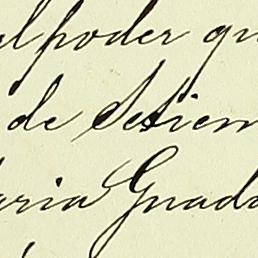 el poder qu
de Setiem
aria Guada